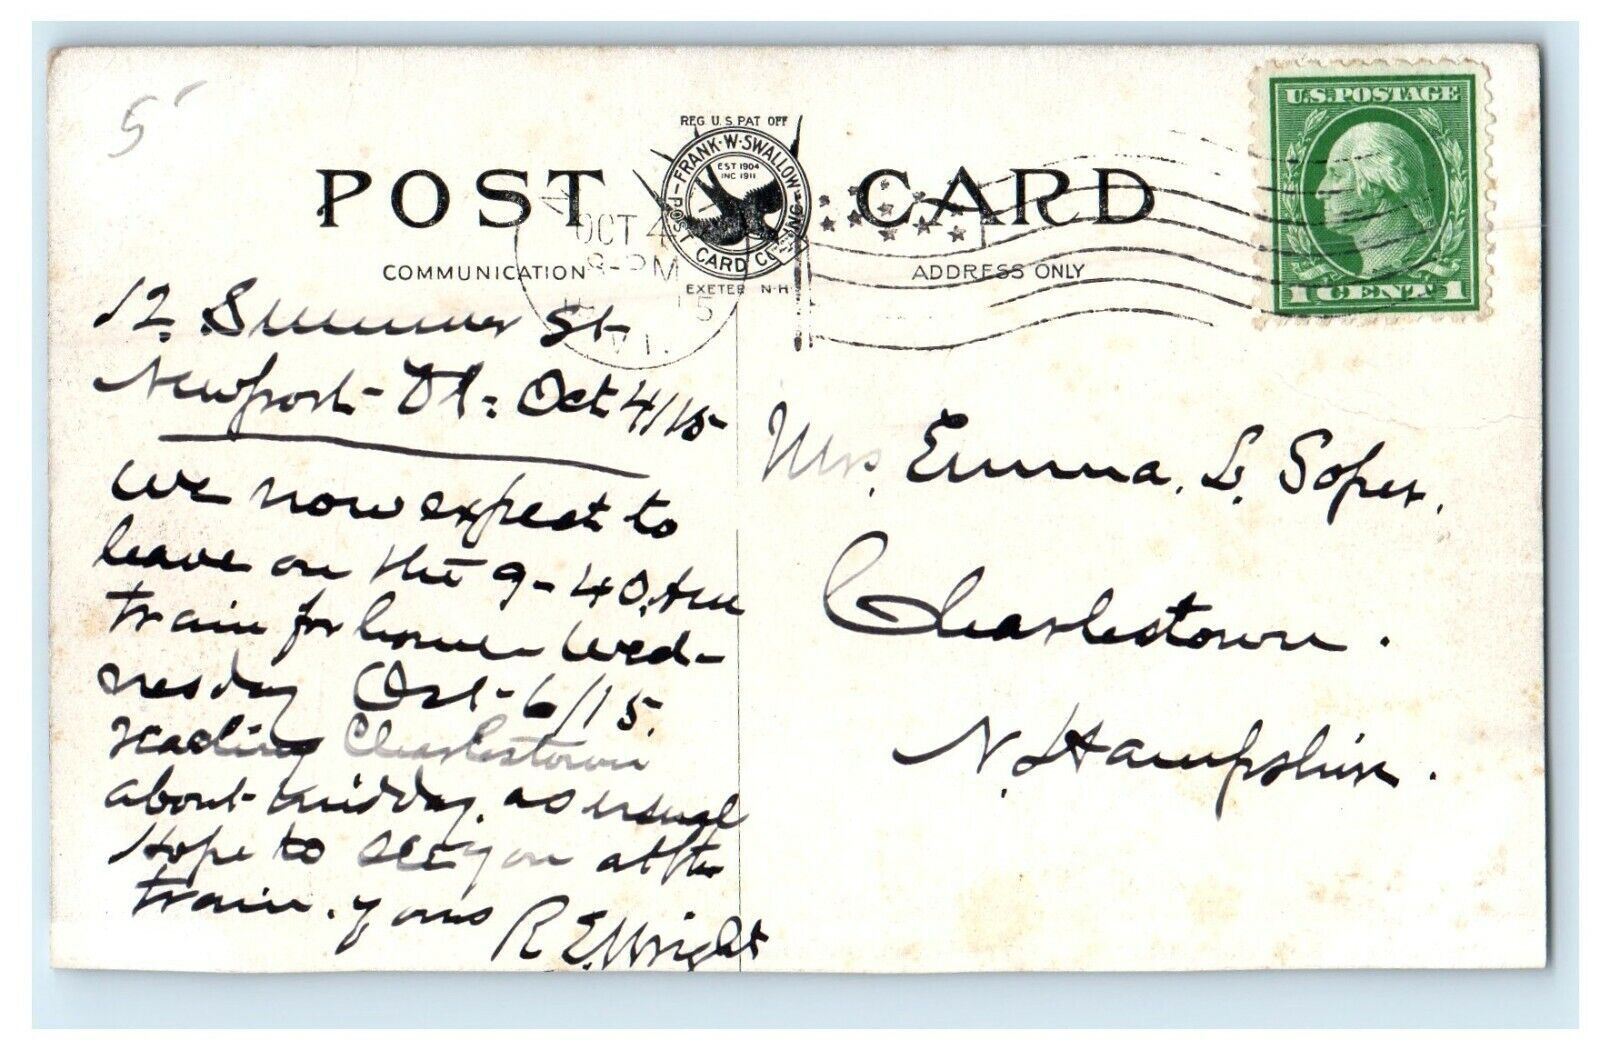 5
REG U.S PAT OFF
FRANK·W·SWALLOW
EST 1904
INC 1911
POST CARD CO
EXETER N·H
POST CARD
COMMUNICATION
ADDRESS ONLY
OCT 4
8-PM
15
VT.
U.S.POSTAGE
1 CENT 1
12 Summer St-
Newport- Vt- Oct 4/15
we now expect to
leave on the 9-40.Am
train for home Wed-
nesday Oct-6/15.
reading Charlestown
about midday. as usual
Hope to see you at the
train. yours
R E. Wright
Mrs, Emma, L. Soper,
Charlestown.
N. Hampshire.